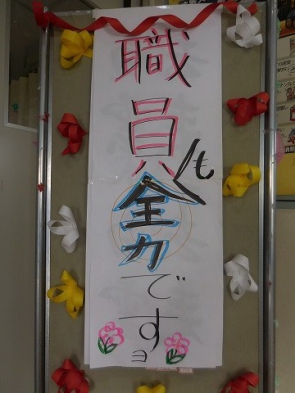 職員も全力ですョ